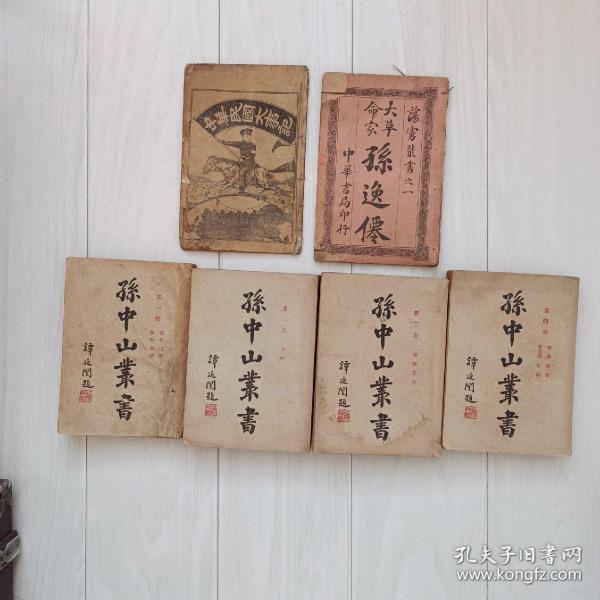 中華民國大事記
蕩寇叢書之一
大革
命家
孫逸僊
中華書局印行
孫中山叢書
譚延闓題
孫中山叢書
譚延闓題
孫中山叢書
譚延闓題
第四冊
孫中山叢書
譚延闓題
孔夫子旧书网
www.kongfz.com